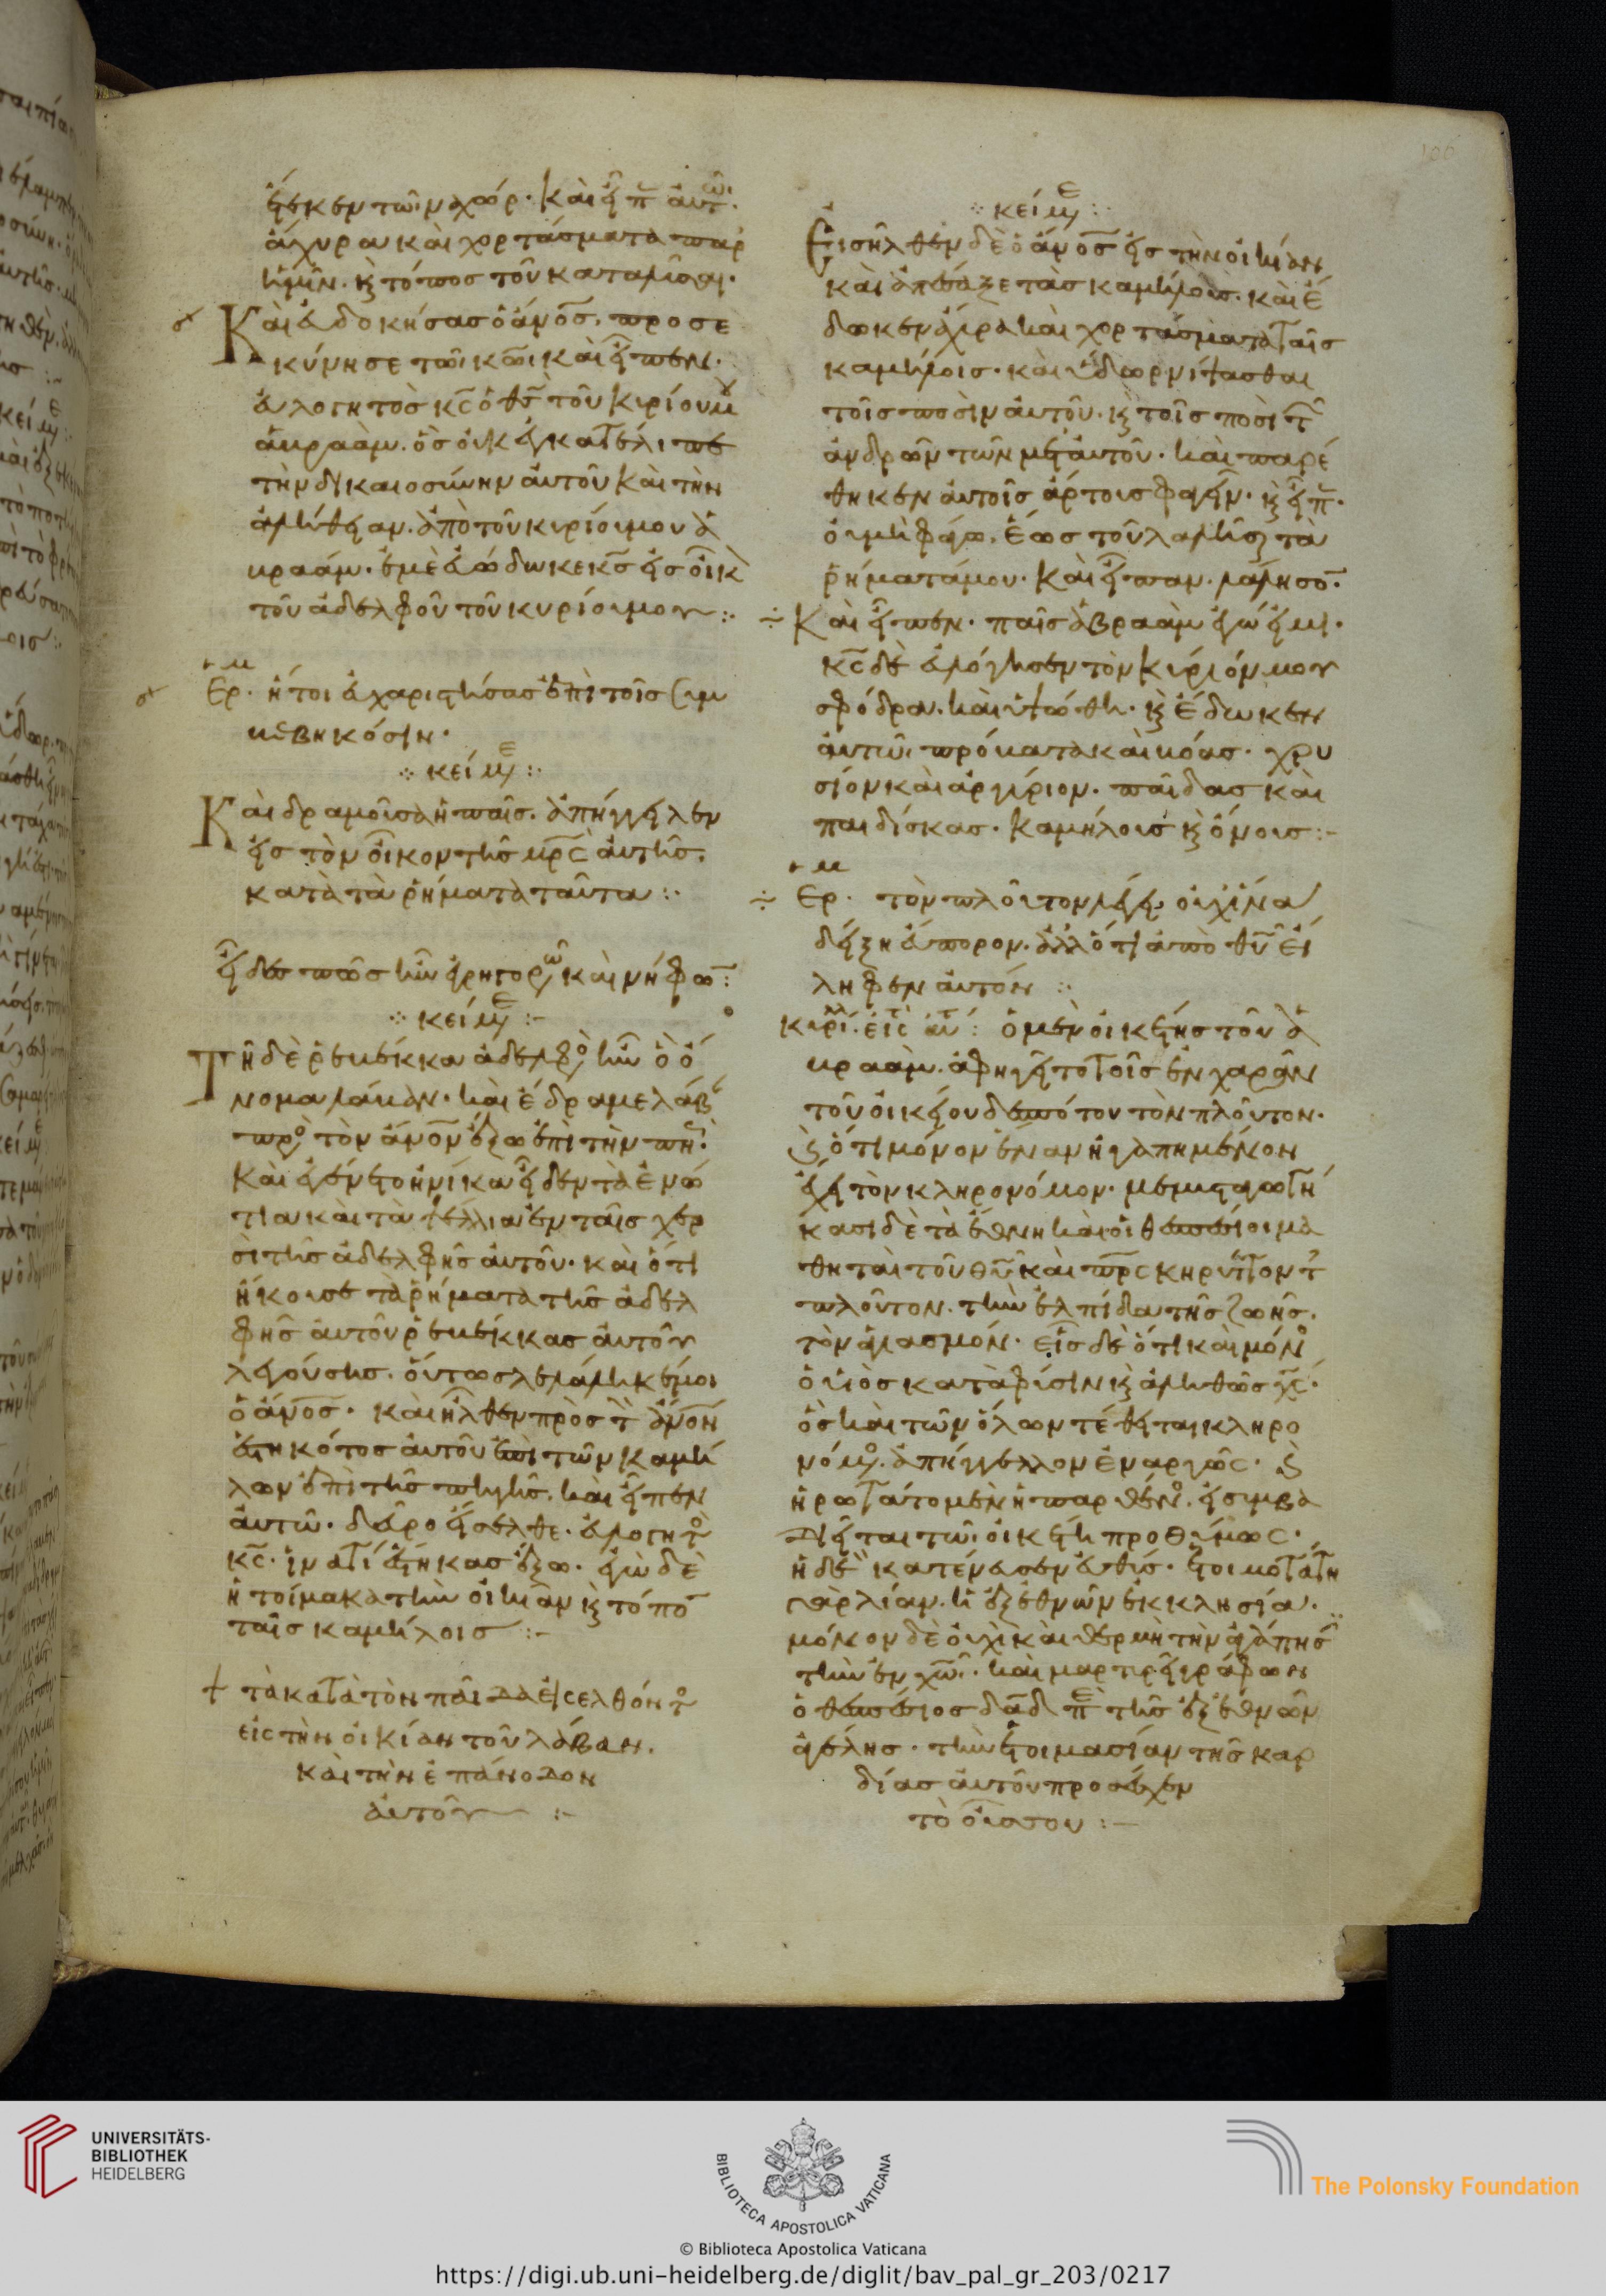 ἔτεκεν τῶι ναχώρ· καὶ εἶπ αὐτῶ·
ἄχυρα καὶ χορτάσματα παρ
ἡμῖν· κ τόπος τοῦ καταλῦσαι·
Καὶ εὐδοκήσας ὁ ἄνος, προσε
κύνησε τῶι κωι καὶ εἶπεν·
εὐλογητὸς κς ὁ θς τοῦ κυρίου μου
ἀβραὰμ· ὃς οὐκ ἐγκατέλιπε
τὴν δικαιοσύνην αὐτοῦ καὶ τὴν
ἀλήθειαν ἀπὸ τοῦ κυρίου μου ἀ
βραάμ· ἐμὲ εὐόδωκε κς εἰς οἶκ
τοῦ ἀδελφοῦ τοῦ κυρίου μου :·
Ερ· ἤτοι εὐχαριστήσας ἐπὶ τοῖς συμ
βεβηκόσιν·
κείμ
Καὶ δραμοῦσα ἡ παῖς· ἀπήγγειλεν
εἰς τὸν οἶκον τῆς μρς αὐτῆς
κατὰ τὰ ῥήματα ταῦτα :·
εἶδες πῶς ἦν γρηγορ καὶ νήφω :
κείμ :-
Τῆ δὲ ῥεβέκκα ἀδελφὸ ἦν ὃ ὄ
νομα λάβαν· καὶ ἔδραμε λάβ
πρ τὸν ἄνον ἔξω ἐπὶ τὴν πη·
καὶ ἐγένετο ἡνίκα εἶδεν τὰ ἐνώ
τια καὶ τὰ ψέλλια ἐν ταῖς χερ
σὶ τῆς ἀδελφῆς αὐτοῦ· καὶ ὅτι
ἤκουσε τὰ ῥήματα τῆς ἀδελ
φῆς αὐτοῦ ῥεβέκκας αὐτοῦ
λεγούσης· οὕτως λελάληκέ μοι
ὁ ἄνος· καὶ ἦλθεν πρὸς τ ἄνον
ἑστηκότος αὐτοῦ ἐπὶ τῶν καμή
λων ἐπὶ τῆς πηγῆς· καὶ εἶπεν
αὐτῶ· δεῦρο εἴσελθε· εὐλογητ
κς· ἵνα τί ἕστηκας ἔξω· ἐγὼ δὲ
ἡτοίμακα τὴν οἰκίαν κ τόπο
ταῖς καμήλοις :-
+ τὰ κατὰ τὸν παῖδα εἰσελθόντ
εἰς τὴν οἰκίαν τοῦ λάβαν·
καὶ τὴν ἐπάνοδον
αὐτοῦ :-
κείμ :·
Εἰσῆλθεν δὲ ὁ ἄνος εἰς τὴν οἰκίαν
καὶ ἀπέσαξε τὰς καμήλους· καὶ ἔ
δωκεν ἄχυρα καὶ χορτάσματα ταῖς
καμήλοις· καὶ ὕδωρ νίψασθαι
τοῖς ποσὶν αὐτοῦ· κ τοῖς ποσὶ τ
ἀνδρῶν τῶν μετ αὐτοῦ· καὶ παρέ
θηκεν αὐτοῖς ἄρτους φαγεῖν· κ εἶπ·
οὐ μὴ φάγω, ἕως τοῦ λαλῆσαι τὰ
ῥήματά μου· καὶ εἶπαν· λάλησο·
Καὶ εἶπεν· παῖς ἀβραὰμ ἐγώ εἰμι·
κς δὲ εὐλόγησεν τὸν κύριόν μου
σφόδρα· καὶ ὑψώθη· κ ἔδωκεν
αὐτῶ πρόβατα καὶ βόας· χρυ
σίον καὶ ἀργύριον· παῖδας καὶ
παιδίσκας· καμήλους κ ὄνους :-
Ερ· τὸν πλοῦτον λέγει, οὐχ ἵνα
δείξη εὔπορον· ἀλλ ὅτι ἀπὸ θυ εἴ
ληφεν αὐτόν :·
κυρί· εἰς τ αυτ : ὁ μὲν οἰκέτης τοῦ ἀ
βραάμ· ἀφηγεῖτο τοῖς ἐν χαρὰν
τοῦ οἰκείου δεσπότου τὸν πλοῦτον·
κ ὅτι μόνον ἕνα ἠγαπημένον
ἔχει τὸν κληρονόμον· μεμυσταγωγή
κασι δὲ τὰ ἔθνη καὶ οἱ θεσπέσιοι μα
θηταὶ τοῦ θυ καὶ πρς κηρύττοντ
πλοῦτον· τὴν ἐλπίδα τῆς ζωῆς·
τὸν ἁγιασμόν· εἷς δὲ ὅτι καὶ μόν
ὁ υἱὸς κατὰ φύσιν κ ἀληθῶς χς·
ὃς καὶ τῶν ὅλων τέθειται κληρο
νόμ· ἀπήγγελλον ἐναργῶς· κ
ἠρωτᾶτο μὲν ἡ παρθέν· εἰ συμβα
διεῖται τῶ οἰκέτη προθύμως·
ἡ δὲ κατένευσεν εὐθύς· ἑτοιμοτάτη
γὰρ λίαν· ἡ ἐξ ἐθνῶν ἐκκλησία·
μόνον δὲ οὐχὶ καὶ θερμὴ τὴν ἀγάπησ
τὴν ἐν χω· καὶ μαρτυρεῖ γράφων
ὁ θεσπέσιος δαδ πε τῆς ἐξ ἐθνῶν
ἀγέλης· τὴν ἑτοιμασίαν τῆς καρ
δίας αὐτοῦ προσέσχεν
τὸ οὖς σου :-
UNIVERSITÄTS-
BIBLIOTHEK
HEIDELBERG
BIBLIOTECA APOSTOLICA VATICANA
The Polonsky Foundation
© Biblioteca Apostolica Vaticana
https://digi.ub.uni-heidelberg.de/diglit/bav_pal_gr_203/0217